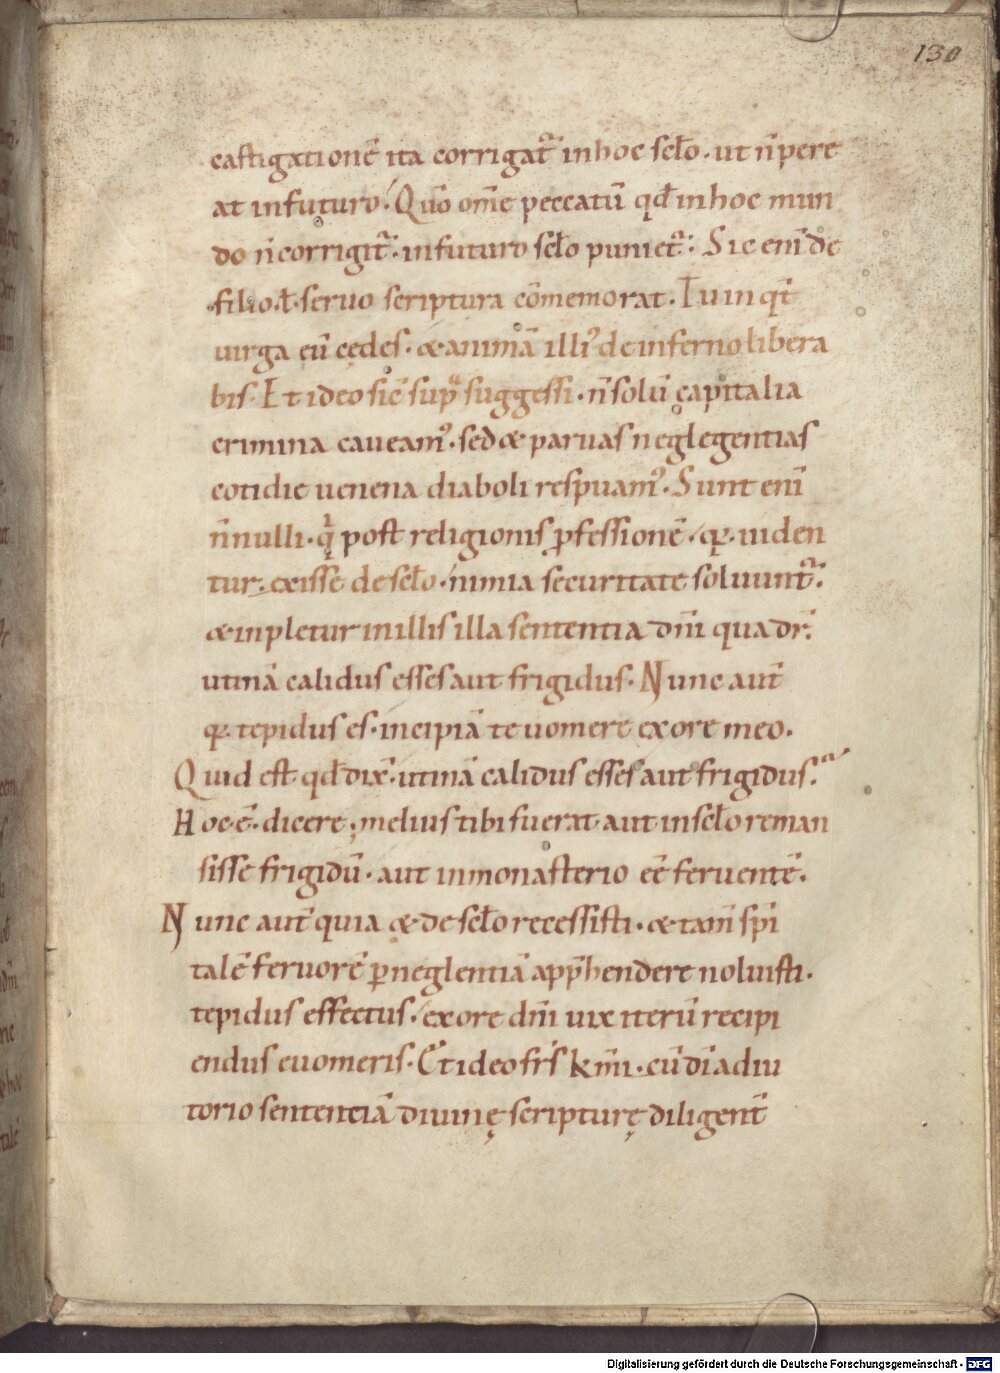 130
castigationē ita corrigat᷑ in hoc scło · ut n̄ pere
at in futuro · Quō om̄e peccatū qđ in hoc mun
do n̄ corrigit᷑ · in futuro scło puniet᷑ · Sic enī de
filio · ł · seruo scriptura cōmemorat · Tu inqt̄
uirga eū cędes · & animā illiꝰ de inferno libera
bis · Et ideo sic̄ supᷓ suggessi · n̄ solū capitalia
crimina caueamꝰ · sed & paruas neglegentias
cotidie uenena diaboli respuamꝰ · Sunt enī
n̄nulli · qͥ post religionis ꝓfessionē · qꝛ · uiden
tur · exisse de scło · nimia securitate soluunt᷑ ·
& inpletur in illis illa sententia dn̄i qua dr̄ ·
utinā calidus esses aut frigidus · Nunc aut̄
qꝛ · tepidus es · incipiā te uomere ex ore meo ·
Quid est qđ dix̄ · utinā calidus esses aut frigidus ·
Hoc · ē · dicere · melius tibi fuerat aut in scło reman
sisse frigidū · aut in monasterio eē feruentē ·
Nunc aut̄ quia & de scło recessisti · & tam̄ spi̅
talē feruorē ꝑ neglentiā app̄hendere noluisti ·
tepidus effectus · ex ore dn̄i uix iterū recipi
endus euomeris · Et ideo fr̄s k̄mi · cū dī adiu
torio sententiā diuinę scripturę diligent̄
Digitalisierung gefördert durch die Deutsche Forschungsgemeinschaft - DFG